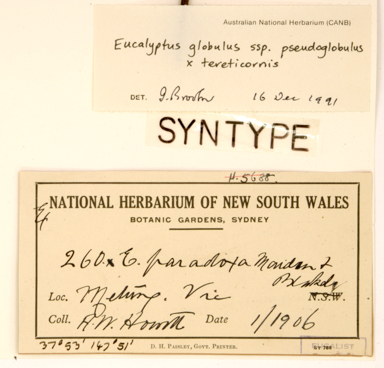 Australian National Herbarium (CANB)
Eucalyptus globulus ssp. pseudoglobulus
x tereticornis
DET. 16 Dec 1991
SYNTYPE
H. 5688.
NATIONAL HERBARIUM OF NEW SOUTH WALES
BOTANIC GARDENS, SYDNEY
260 x E. paradoxa Maiden &
Blakely
Loc. Metung. Vic N.S.W.
Coll. A.W. Howitt Date 1/1906
37°53' 147°51'
D. H. PAISLEY, GOVT. PRINTER.